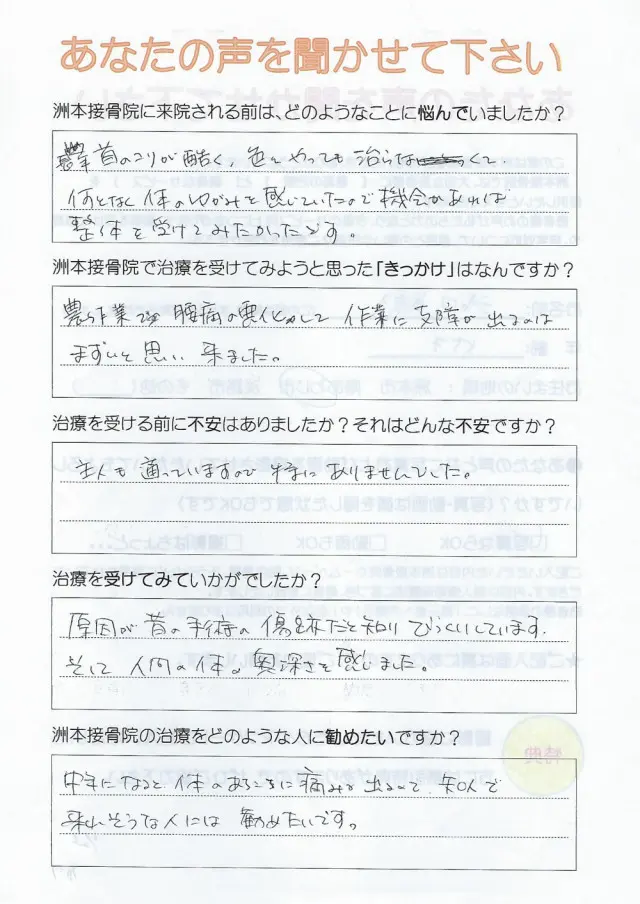 あなたの声を聞かせて下さい
洲本接骨院に来院される前は、どのようなことに悩んでいましたか？
首のコリが酷く、色々やっても治らなくて
何となく体のゆがみを感じていたので機会があれば
整体を受けてみたかったです。
洲本接骨院で治療を受けてみようと思った「きっかけ」はなんですか？
農作業で 腰痛が悪化して 作業に支障が出るのは
まずいと思い 来ました。
治療を受ける前に不安はありましたか？それはどんな不安ですか？
主人も通っていますので特にありませんでした。
治療を受けてみていかがでしたか？
原因が昔の手術の傷跡だと知りびっくりしています。
そして 人間の体の奥深さを感じました。
洲本接骨院の治療をどのような人に勧めたいですか？
中年になると体のあちこちに痛みが出るので、知人で
来れそうな人には 勧めたいです。